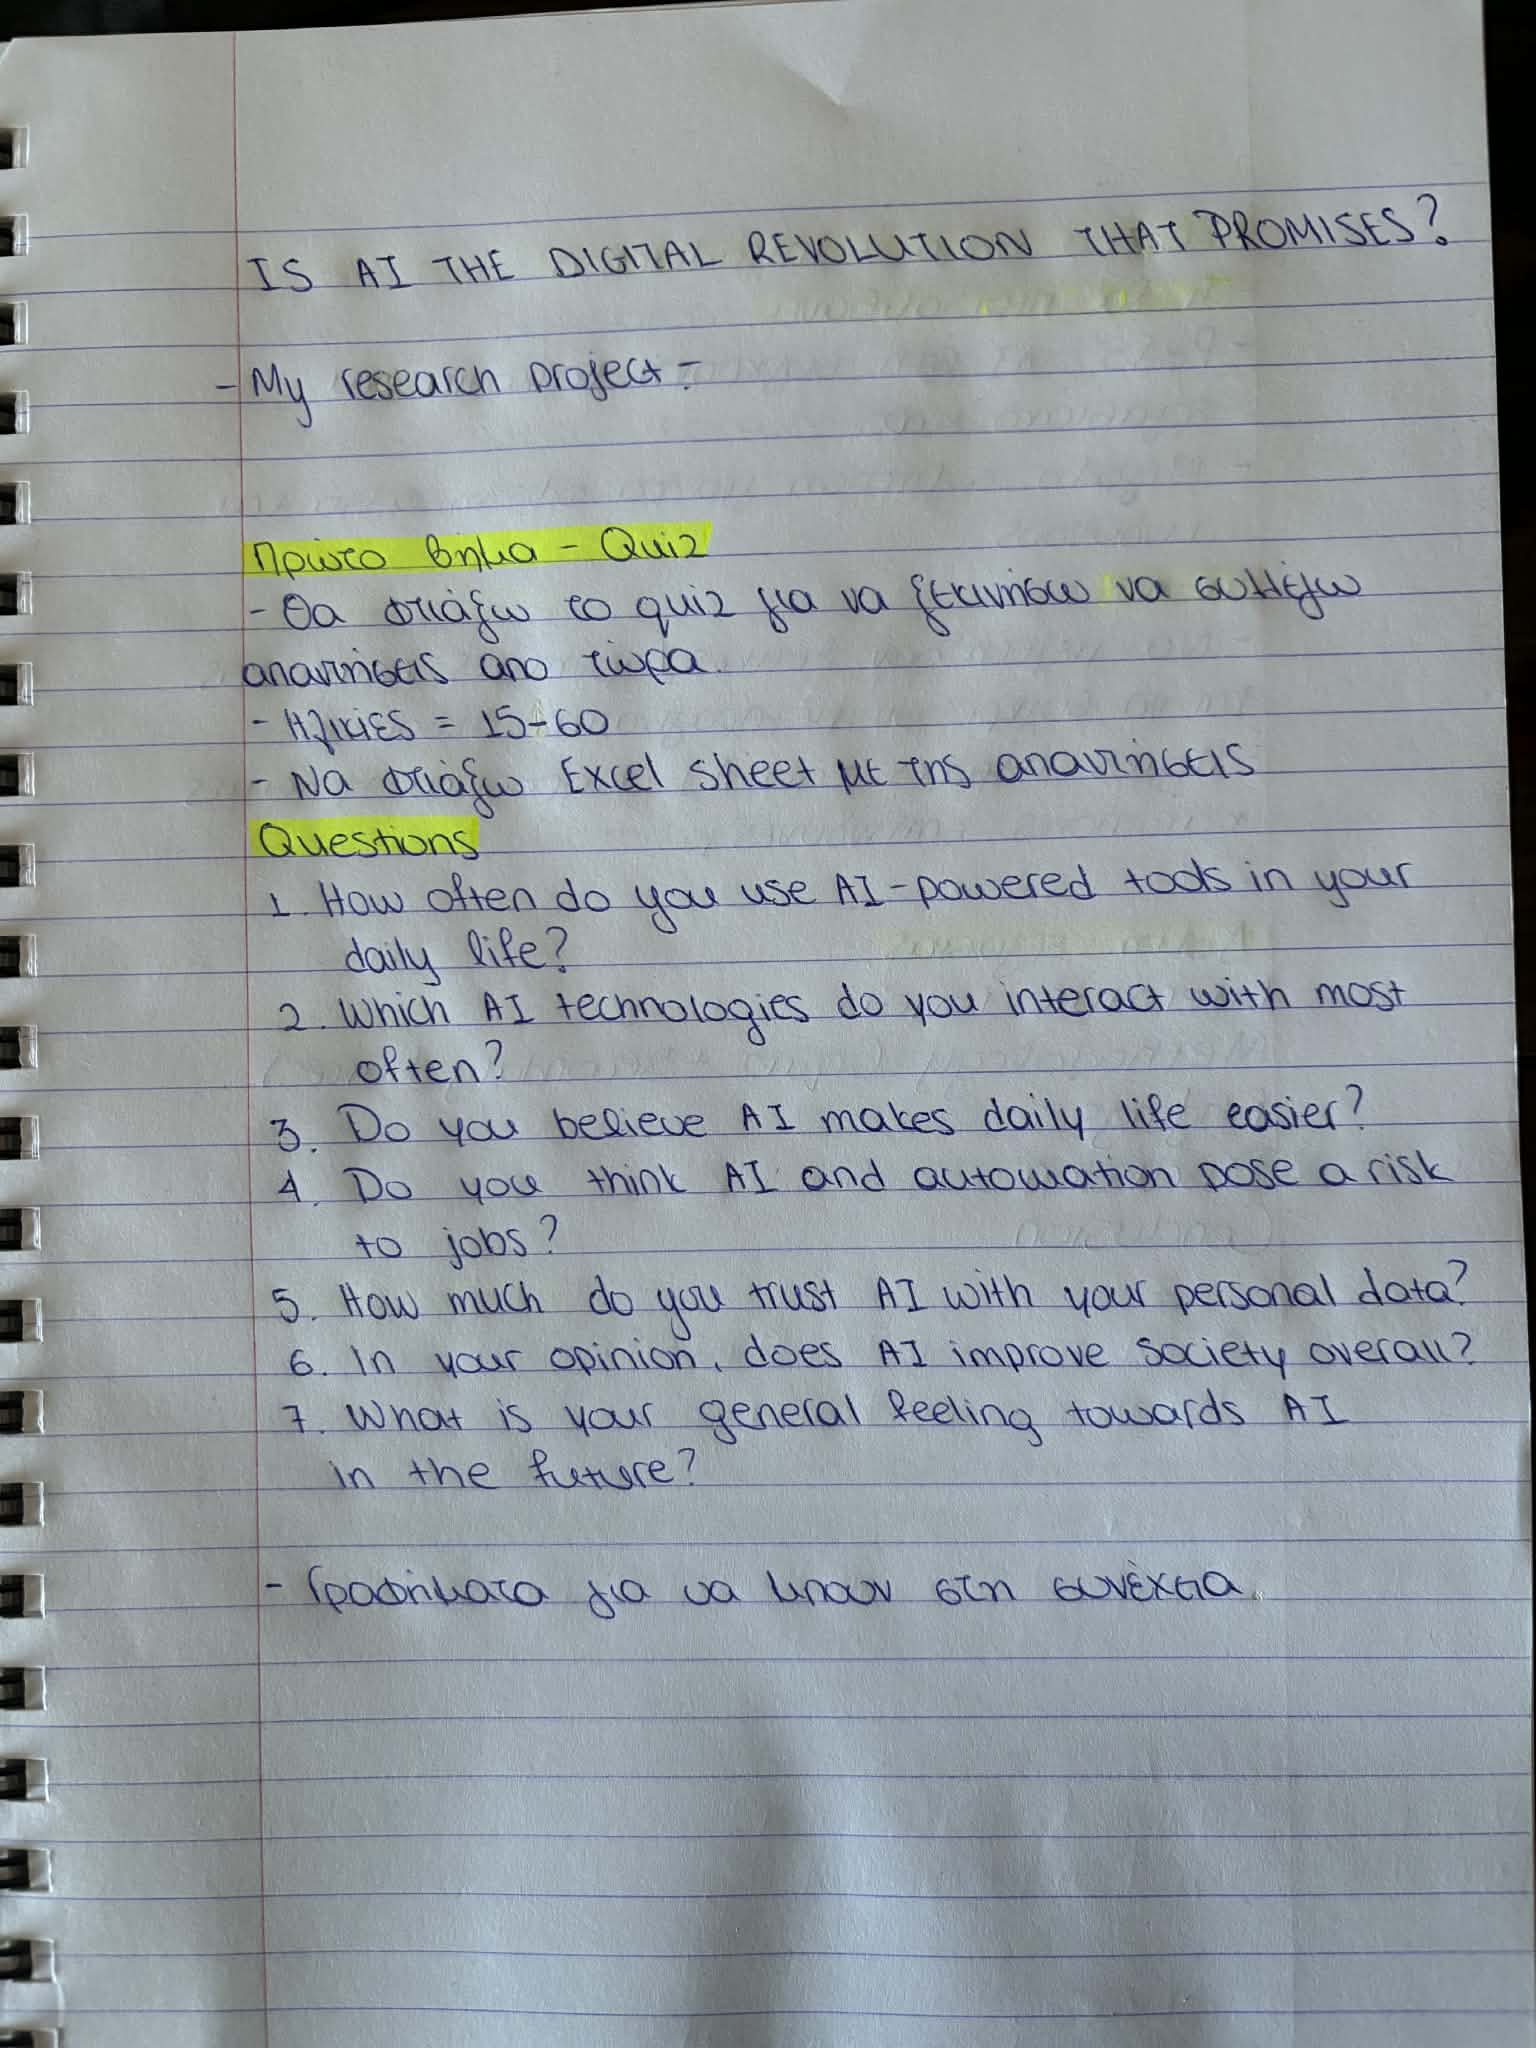 IS AI THE DIGITAL REVOLUTION THAT PROMISES?
- My research project -
Πρώτο βήμα - Quiz
- Θα φτιάξω το quiz για να ξεκινήσω να συλλέγω
απαντήσεις απο τώρα.
- Ηλικίες = 15-60
- Να φτιάξω Excel sheet με της απαντήσεις
Questions
1. How often do you use AI-powered tools in your
daily life?
2. Which AI technologies do you interact with most
often?
3. Do you believe AI makes daily life easier?
4. Do you think AI and automation pose a risk
to jobs?
5. How much do you trust AI with your personal data?
6. In your opinion, does AI improve society overall?
7. What is your general feeling towards AI
in the future?
- Γραφήματα για να μπουν στη συνέχεια.